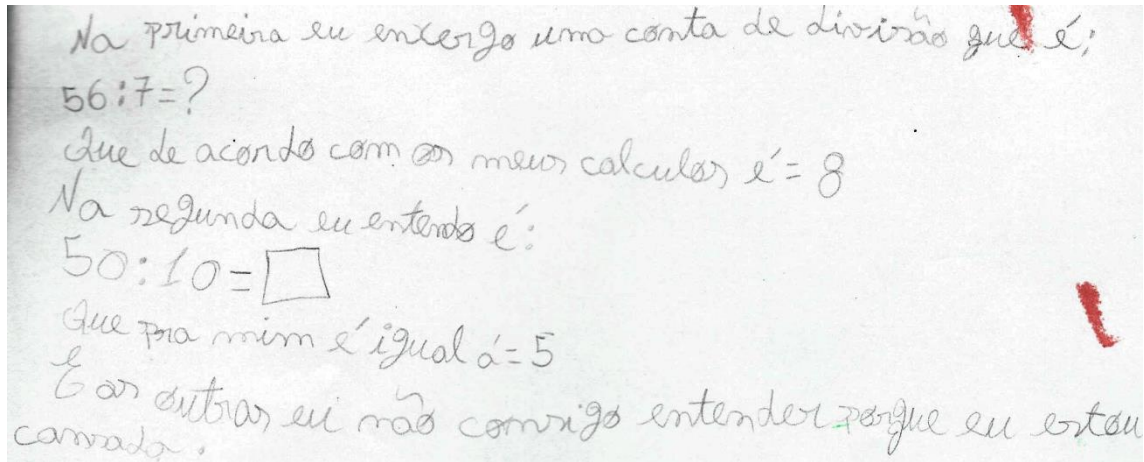 Na primeira eu enxergo uma conta de divisão que é:
56:7=?
Que de acordo com os meus calculos é = 8
Na segunda eu entendo é:
50:10=□
Que pra mim é igual á = 5
E as outras eu não consigo entender porque eu estou
cansada.